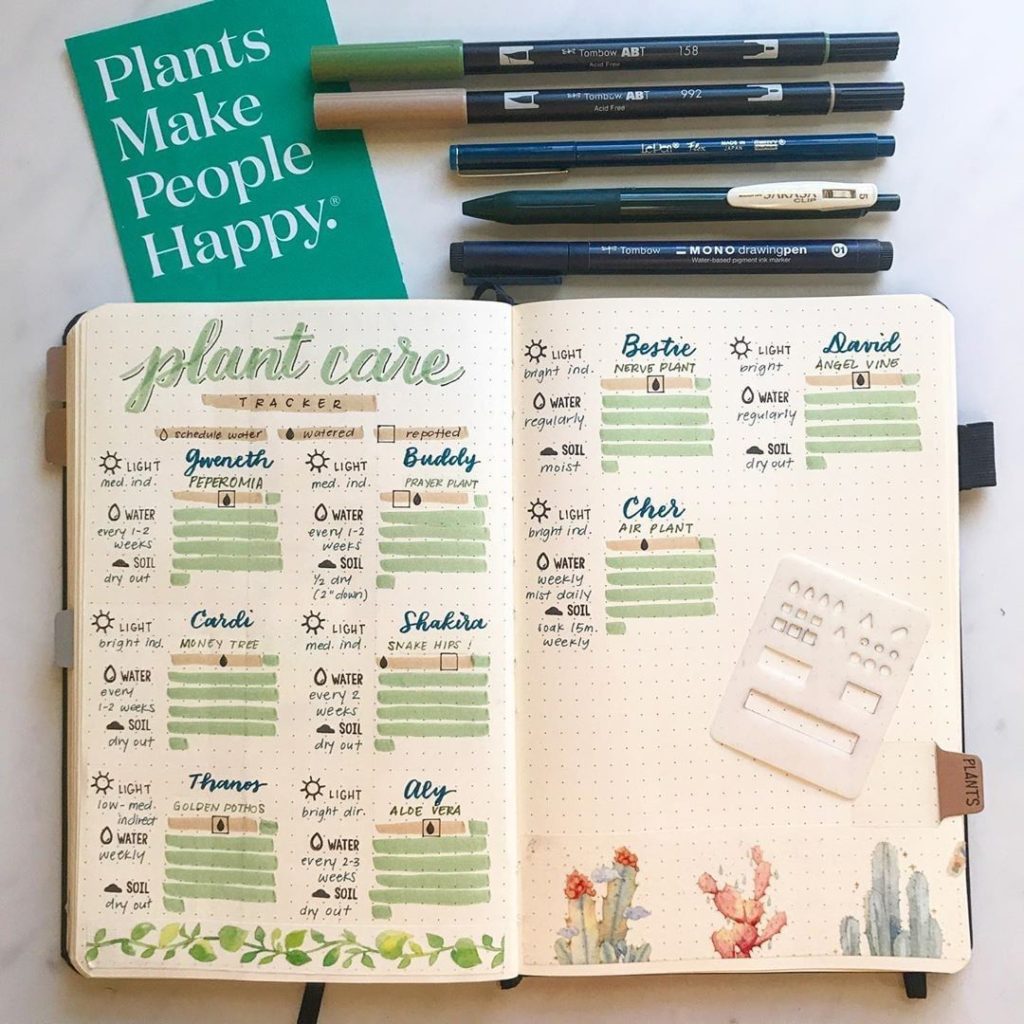 Plants
Make
People
Happy.®
Tombow ABT 158
Acid Free
Tombow ABT 992
Acid Free
LePen® Flex MADE IN JAPAN
SARASA CLIP 5
Tombow MONO drawingpen 01
Water-based pigment ink marker
plant care
TRACKER
schedule water watered repotted
LIGHT
med. ind.
WATER
every 1-2
weeks
SOIL
dry out
Gweneth
PEPEROMIA
LIGHT
med. ind.
WATER
every 1-2
weeks
SOIL
1/2 dry
(2" down)
Buddy
PRAYER PLANT
LIGHT
bright ind.
WATER
every
1-2 weeks
SOIL
dry out
Cardi
MONEY TREE
LIGHT
med. ind.
WATER
every 2
weeks
SOIL
dry out
Shakira
SNAKE HIPS!
LIGHT
low-med.
indirect
WATER
weekly
SOIL
dry out
Thanos
GOLDEN POTHOS
LIGHT
bright dir.
WATER
every 2-3
weeks
SOIL
dry out
Aly
ALOE VERA
LIGHT
bright ind.
WATER
regularly
SOIL
moist
Bestie
NERVE PLANT
LIGHT
bright
WATER
regularly
SOIL
dry out
David
ANGEL VINE
LIGHT
bright ind.
WATER
weekly
mist daily
SOIL
soak 15m.
weekly
Cher
AIR PLANT
PLANTS